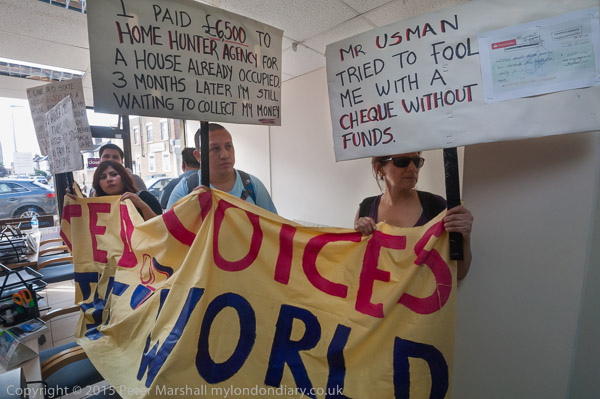 I PAID £6500 TO
HOME HUNTER AGENCY FOR
A HOUSE ALREADY OCCUPIED
3 MONTHS LATER I'M STILL
WAITING TO COLLECT MY MONEY
MR USMAN
TRIED TO FOOL
ME WITH A
CHEQUE WITHOUT
FUNDS.
TED VOICES
THE WORLD
Copyright © 2015 Peter Marshall mylondondiary.co.uk